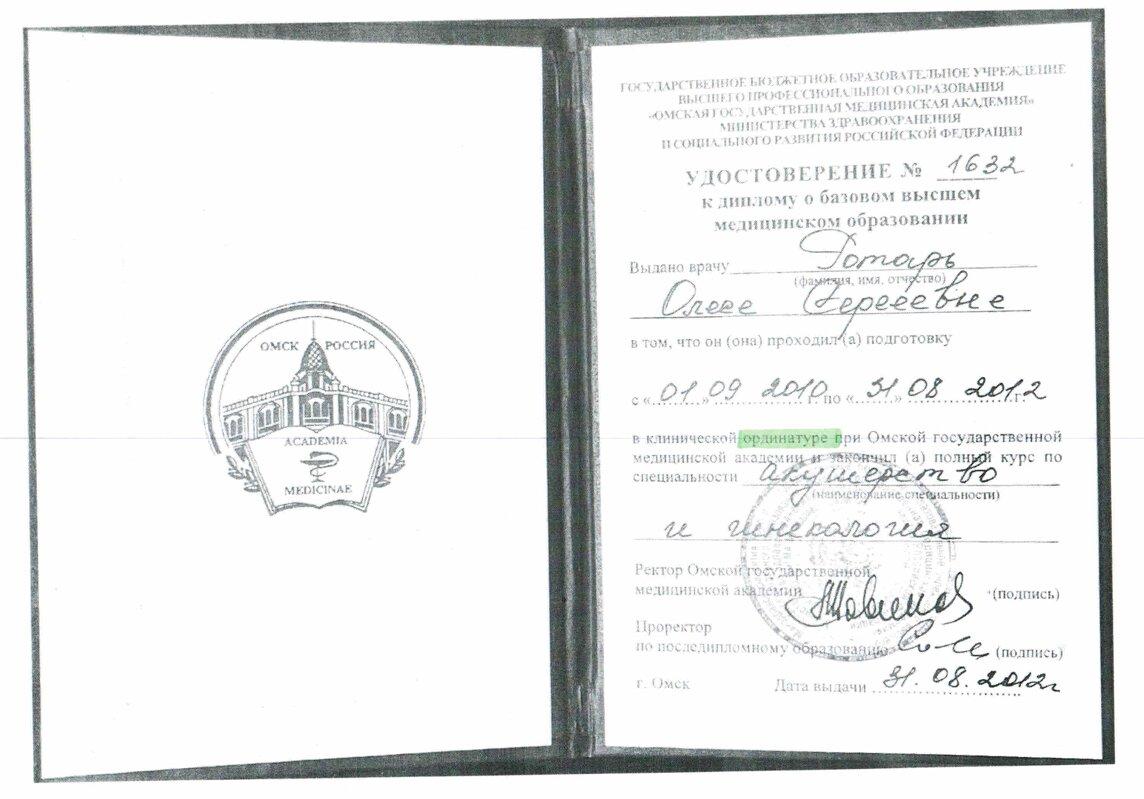 ОМСК РОССИЯ
ACADEMIA
MEDICINAE
ГОСУДАРСТВЕННОЕ БЮДЖЕТНОЕ ОБРАЗОВАТЕЛЬНОЕ УЧРЕЖДЕНИЕ
ВЫСШЕГО ПРОФЕССИОНАЛЬНОГО ОБРАЗОВАНИЯ
«ОМСКАЯ ГОСУДАРСТВЕННАЯ МЕДИЦИНСКАЯ АКАДЕМИЯ»
МИНИСТЕРСТВА ЗДРАВООХРАНЕНИЯ
И СОЦИАЛЬНОГО РАЗВИТИЯ РОССИЙСКОЙ ФЕДЕРАЦИИ
УДОСТОВЕРЕНИЕ № 1632
к диплому о базовом высшем
медицинском образовании
Выдано врачу Ротарь
(фамилия, имя, отчество)
Олесе Сергеевне
в том, что он (она) проходил (а) подготовку
с «01» 09 2010 г. по «31» 08 2012 г.
в клинической ординатуре при Омской государственной
медицинской академии и закончил (а) полный курс по
специальности акушерство
(наименование специальности)
и гинекология
Ректор Омской государственной
медицинской академии (подпись)
Проректор
по последипломному образованию (подпись)
г. Омск Дата выдачи 31.08.2012г